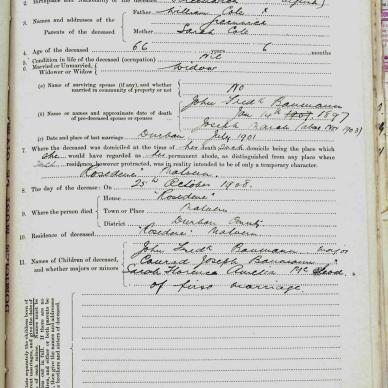 2. Birthplace and Nationality of the deceased
3. Names and addresses of the Parents of the deceased
Father William Cole
Greenwich
Mother Sarah Cole
4. Age of the deceased 66 years 6 months
5. Condition in life of the deceased (occupation) Nil
6. Married or Unmarried, Widower or Widow Widow
(a) Name of surviving spouse (if any), and whether married in community of property or not No
(b) Names and approximate date of death of pre-deceased spouse or spouses
John Fredk Baumann
Jan 14th 1897
Joseph 1903)
(c) Date and place of last marriage Durban July 1901
7. Where the deceased was domiciled at the time of her death. Such domicile being the place which
she would have regarded as her permanent abode, as distinguished from any place where
residence, however protracted, was in reality intended to be of only a temporary character.
"Rosedene" Malvern.
8. The day of the decease: On 25th October 1908.
9. Where the person died
House "Rosedene"
Town or Place Malvern
District Durban County
10. Residence of deceased "Rosedene" Malvern
11. Names of Children of deceased, and whether majors or minors
John Fredk Baumann major
Conrad Joseph Baumann "
Sarah Florence Amelia
of first marriage